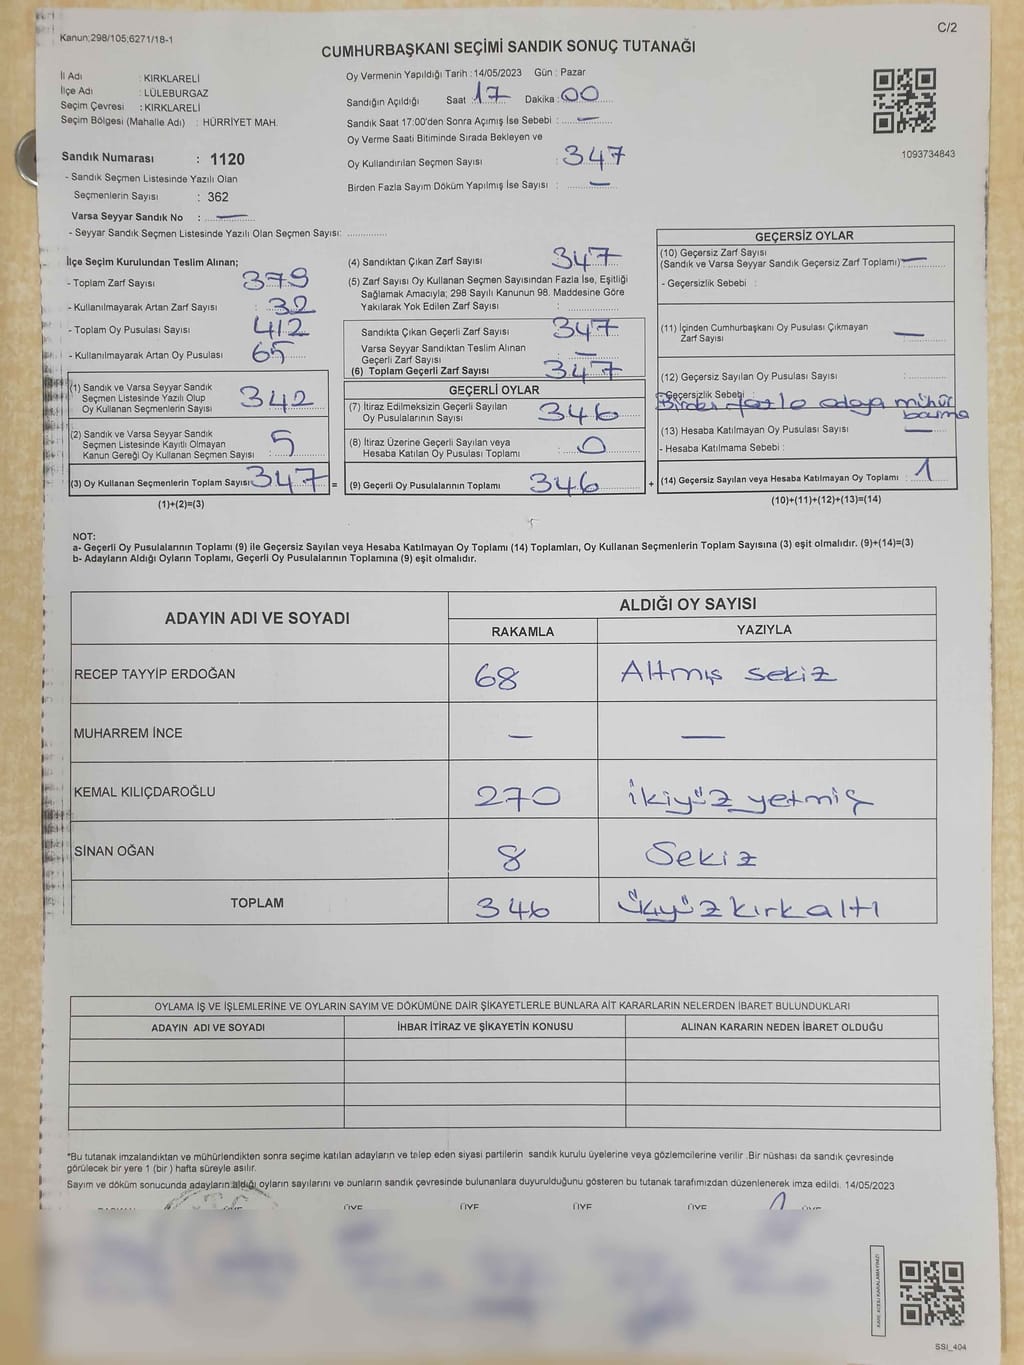 Kanun:298/105;6271/18-1
C/2
CUMHURBAŞKANI SEÇİMİ SANDIK SONUÇ TUTANAĞI
İl Adı : KIRKLARELİ
İlçe Adı : LÜLEBURGAZ
Seçim Çevresi : KIRKLARELİ
Seçim Bölgesi (Mahalle Adı) : HÜRRİYET MAH.
Sandık Numarası : 1120
- Sandık Seçmen Listesinde Yazılı Olan
Seçmenlerin Sayısı : 362
Varsa Seyyar Sandık No : —
- Seyyar Sandık Seçmen Listesinde Yazılı Olan Seçmen Sayısı: ..............
Oy Vermenin Yapıldığı Tarih : 14/05/2023 Gün : Pazar
Sandığın Açıldığı Saat 17 Dakika : 00
Sandık Saat 17:00'den Sonra Açımış İse Sebebi : —
Oy Verme Saati Bitiminde Sırada Bekleyen ve
Oy Kullandırılan Seçmen Sayısı : 347
Birden Fazla Sayım Döküm Yapılmış İse Sayısı : —
1093734843
İlçe Seçim Kurulundan Teslim Alınan;
- Toplam Zarf Sayısı : 379
- Kullanılmayarak Artan Zarf Sayısı : 32
- Toplam Oy Pusulası Sayısı : 412
- Kullanılmayarak Artan Oy Pusulası : 65
(1) Sandık ve Varsa Seyyar Sandık
Seçmen Listesinde Yazılı Olup
Oy Kullanan Seçmenlerin Sayısı : 342
(2) Sandık ve Varsa Seyyar Sandık
Seçmen Listesinde Kayıtlı Olmayan
Kanun Gereği Oy Kullanan Seçmen Sayısı : 5
(3) Oy Kullanan Seçmenlerin Toplam Sayısı : 347 =
(1)+(2)=(3)
(4) Sandıktan Çıkan Zarf Sayısı : 347
(5) Zarf Sayısı Oy Kullanan Seçmen Sayısından Fazla İse, Eşitliği
Sağlamak Amacıyla; 298 Sayılı Kanunun 98. Maddesine Göre
Yakılarak Yok Edilen Zarf Sayısı :
Sandıkta Çıkan Geçerli Zarf Sayısı : 347
Varsa Seyyar Sandıktan Teslim Alınan
Geçerli Zarf Sayısı : —
(6) Toplam Geçerli Zarf Sayısı : 347
GEÇERLİ OYLAR
(7) İtiraz Edilmeksizin Geçerli Sayılan
Oy Pusulasının Sayısı : 346
(8) İtiraz Üzerine Geçerli Sayılan veya
Hesaba Katılan Oy Pusulası Toplamı : 0
(9) Geçerli Oy Pusulalarının Toplamı 346 +
GEÇERSİZ OYLAR
(10) Geçersiz Zarf Sayısı
(Sandık ve Varsa Seyyar Sandık Geçersiz Zarf Toplamı) —
- Geçersizlik Sebebi :
(11) İçinden Cumhurbaşkanı Oy Pusulası Çıkmayan
Zarf Sayısı —
(12) Geçersiz Sayılan Oy Pusulası Sayısı :
- Geçersizlik Sebebi :
fazla adaya mühür
basma
(13) Hesaba Katılmayan Oy Pusulası Sayısı —
- Hesaba Katılmama Sebebi :
(14) Geçersiz Sayılan veya Hesaba Katılmayan Oy Toplamı : 1
(10)+(11)+(12)+(13)=(14)
NOT:
a- Geçerli Oy Pusulalarının Toplamı (9) ile Geçersiz Sayılan veya Hesaba Katılmayan Oy Toplamı (14) Toplamları, Oy Kullanan Seçmenlerin Toplam Sayısına (3) eşit olmalıdır. (9)+(14)=(3)
b- Adayların Aldığı Oyların Toplamı, Geçerli Oy Pusulalarının Toplamına (9) eşit olmalıdır.
ADAYIN ADI VE SOYADI
ALDIĞI OY SAYISI
RAKAMLA YAZIYLA
RECEP TAYYİP ERDOĞAN 68 Altmış sekiz
MUHARREM İNCE — —
KEMAL KILIÇDAROĞLU 270 ikiyüz yetmiş
SİNAN OĞAN 8 Sekiz
TOPLAM 346 üçyüz kırk altı
OYLAMA İŞ VE İŞLEMLERİNE VE OYLARIN SAYIM VE DÖKÜMÜNE DAİR ŞİKAYETLERLE BUNLARA AİT KARARLARIN NELERDEN İBARET BULUNDUKLARI
ADAYIN ADI VE SOYADI İHBAR İTİRAZ VE ŞİKAYETİN KONUSU ALINAN KARARIN NEDEN İBARET OLDUĞU
*Bu tutanak imzalandıktan ve mühürlendikten sonra seçime katılan adayların ve talep eden siyasi partilerin sandık kurulu üyelerine veya gözlemcilerine verilir .Bir nüshası da sandık çevresinde
görülecek bir yere 1 (bir ) hafta süreyle asılır.
Sayım ve döküm sonucunda adayların aldığı oyların sayılarını ve bunların sandık çevresinde bulunanlara duyurulduğunu gösteren bu tutanak tarafımızdan düzenlenerek imza edildi. 14/05/2023
ÜYE ÜYE ÜYE ÜYE ÜYE
KARE KODU KARALAMAYINIZ!
SSI_404